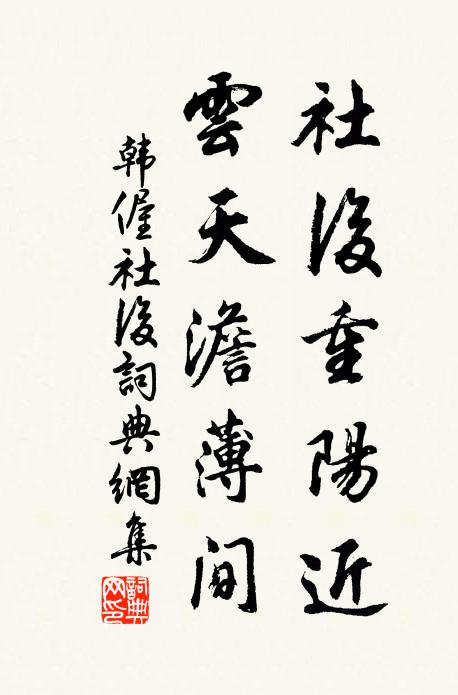 社後重陽近
雲天澹薄間
韩偓社後詞典網集
詞典網印